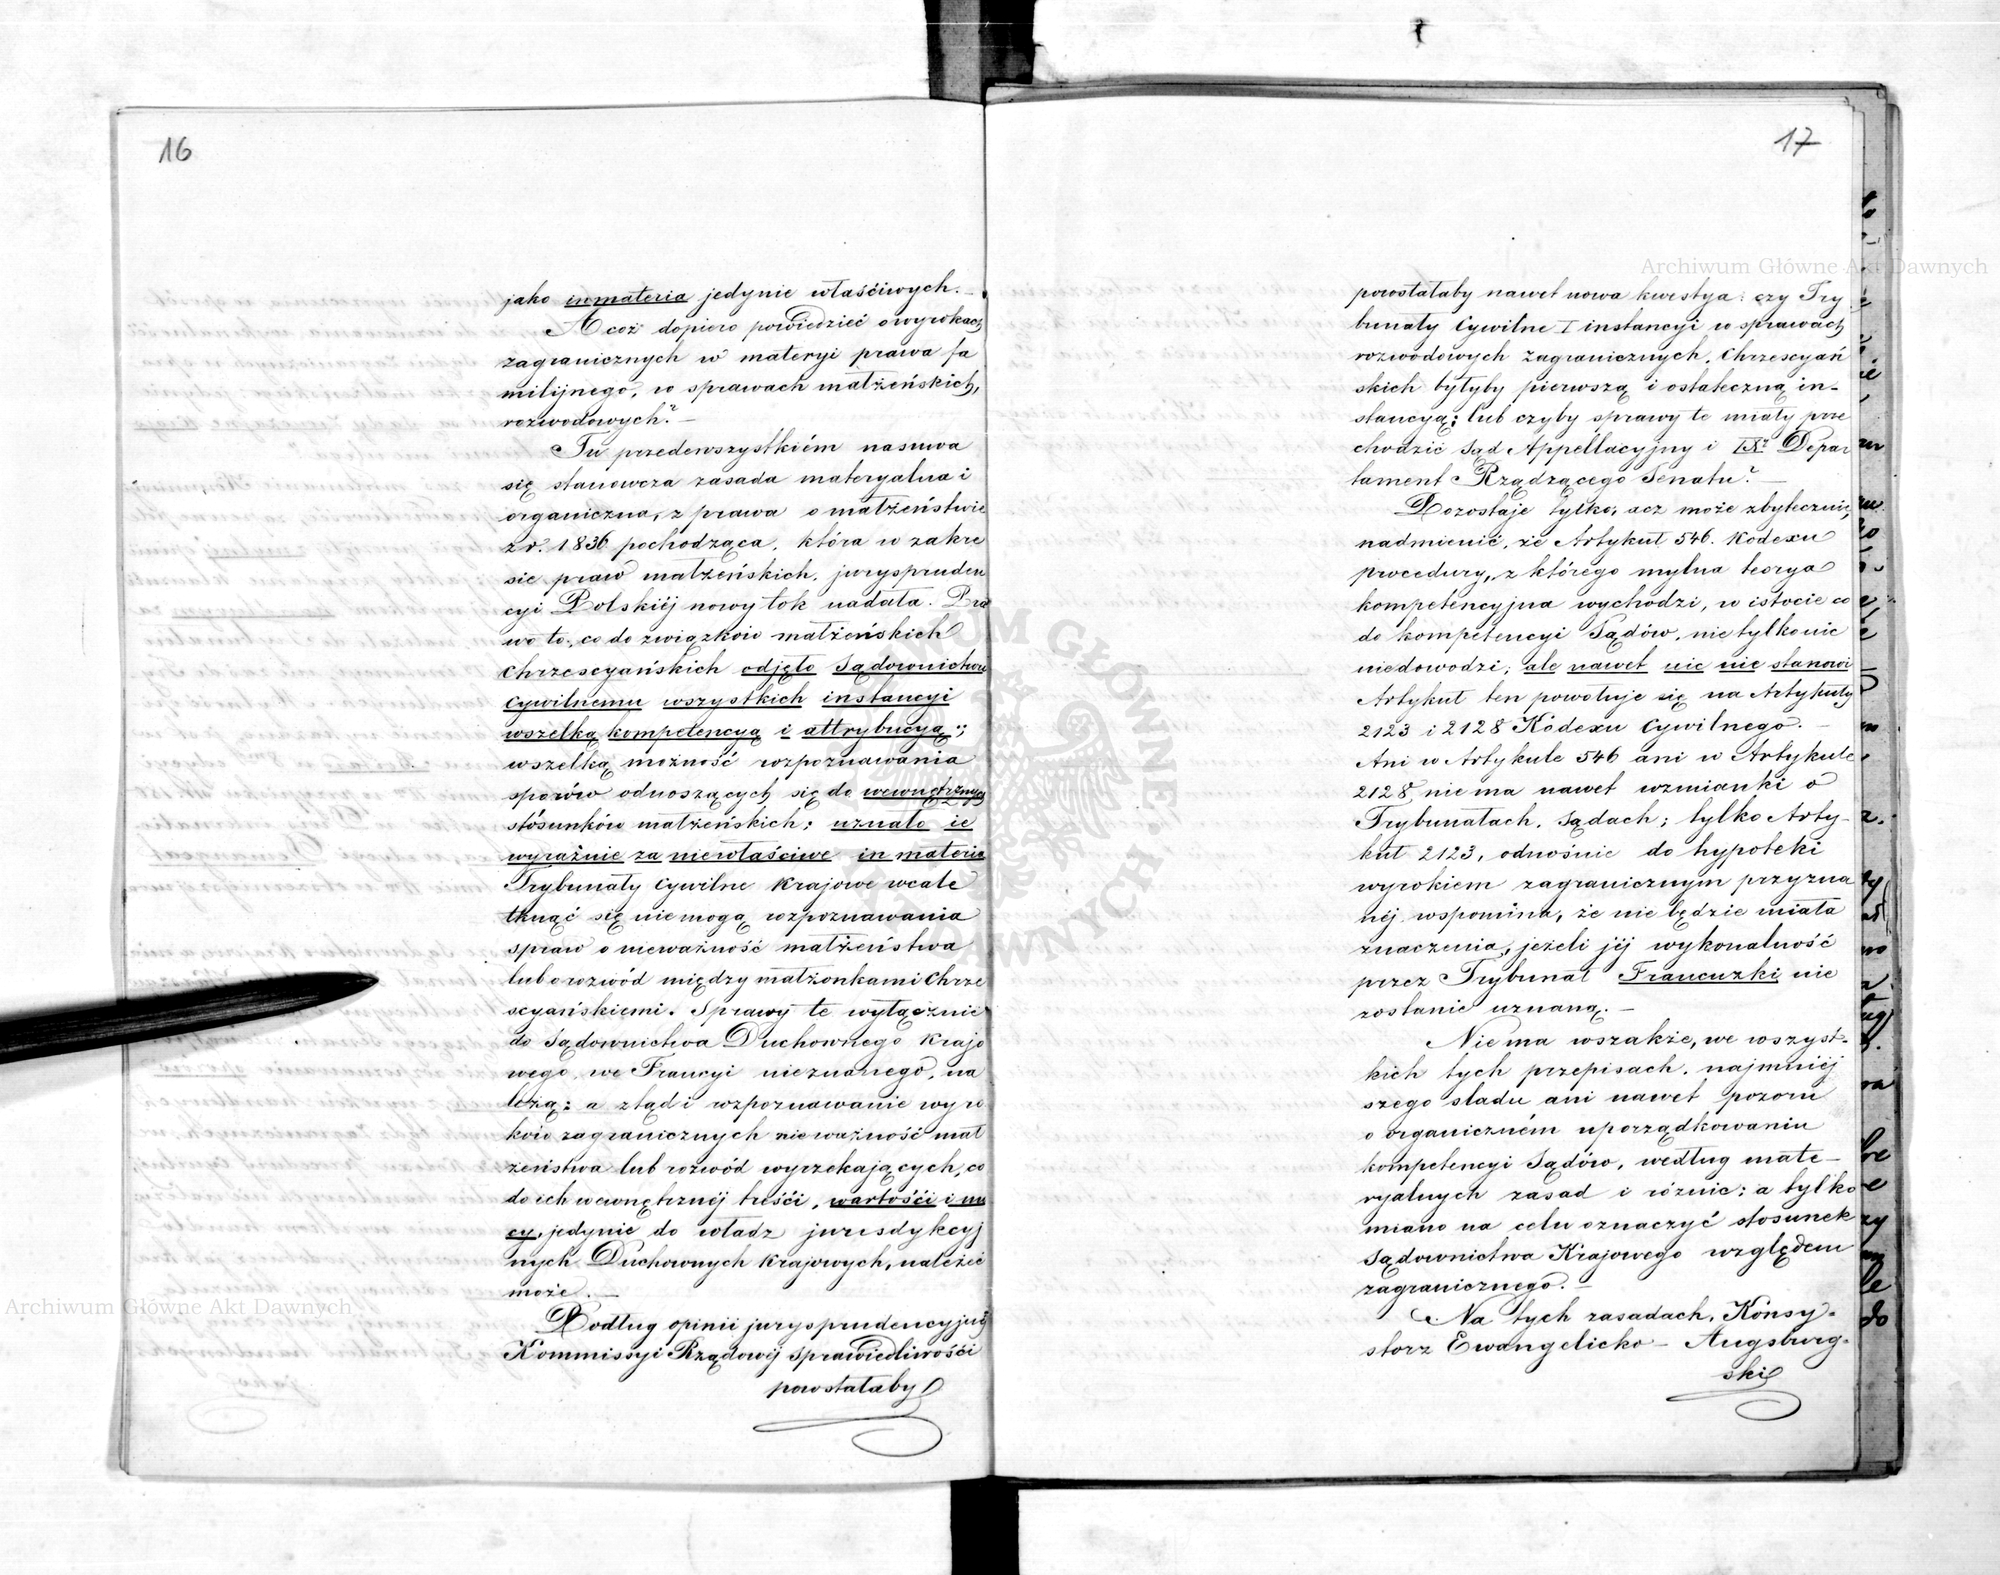 16
jako inmateria jedynie właściwych.—
A coż dopiero powiedzieć o wyrokach
zagranicznych w materyi prawa fa
milijnego, w sprawach małżeńskich,
rozwodowych?—
Tu przedewszystkiém nasuwa
się stanowcza zasada materyalna i
organiczna, z prawa o małżeństwie
z r. 1836 pochodząca, która w zakre
sie praw małżeńskich, juryspruden
cyi Polskiéj nowy tok nadała. Pra
wo to, co do związków małżeńskich
Chrzescyańskich odjęło Sądownictwu
Cywilnemu wszystkich instancyi
wszelką kompetencyą i attrybucyą;
wszelką możność rozpoznawania
sporów odnoszących się do wewnętrznych
stósunków małżeńskich; uznało je
wyraźnie za niewłaściwe in materia
Trybunały Cywilne Krajowe wcale
tknąć się nie mogą rozpoznawania
spraw o nieważność małżeństwa
lub o rozwód między małżonkami Chrze
scyańskiemi. Sprawy te wyłącznie
do Sądownictwa Duchownego Krajo
wego, we Francyi nieznanego, na
leżą; a ztąd i rozpoznawanie wyro
ków zagranicznych nieważność mał
żeństwa lub rozwód wyrzekających, co
do ich wewnętrznéj treści, wartości i mo
cy, jedynie do władz jurisdykcyj
nych Duchownych Krajowych, należeć
może.—
Podług opinii jurysprudencyjnéj
Kommissyi Rządowéj Sprawiedliwości
powstałaby
17
powstałaby nawet nowa kwestya: czy Try
bunały Cywilne I instancyi w sprawach
rozwodowych zagranicznych, Chrzescyań
skich byłyby pierwszą i ostateczną in-
stancyą; lub czyby sprawy te miały prze
chodzić Sąd Appellacyjny i IXty Depar
tament Rządzącego Senatu?—
Pozostaje tylko, acz może zbytecznie,
nadmienić, że Artykuł 546. Kodexu
procedury, z którego mylna teorya
kompetencyjna wychodzi, w istocie co
do kompetencyi Sądów, nie tylko nic
niedowodzi, ale nawet nic nie stanowi
Artykuł ten powołuje się na Artykuły
2123 i 2128 Kodexu Cywilnego.—
Ani w Artykule 546 ani w Artykule
2128, niema nawet wzmianki o
Trybunałach, Sądach; tylko Arty-
kuł 2123, odnośnie do hypoteki
wyrokiem zagranicznym przyzna
néj wspomina, że nie będzie miała
znaczenia, jeżeli jéj wykonalność
przez Trybunał Francuzki nie
zostanie uznaną.—
Niema wszakże, we wszyst-
kich tych przepisach, najmniéj
szego sladu ani nawet pozoru
o organiczném uporządkowaniu
kompetencyi Sądów, według mate-
ryalnych zasad i różnic; a tylko
miano na celu oznaczyć stosunek
Sądownictwa Krajowego względem
zagranicznego.—
Na tych zasadach, Konsy-
storz Ewangelicko-Augsburg-
ski
Archiwum Główne Akt Dawnych
Archiwum Główne Akt Dawnych